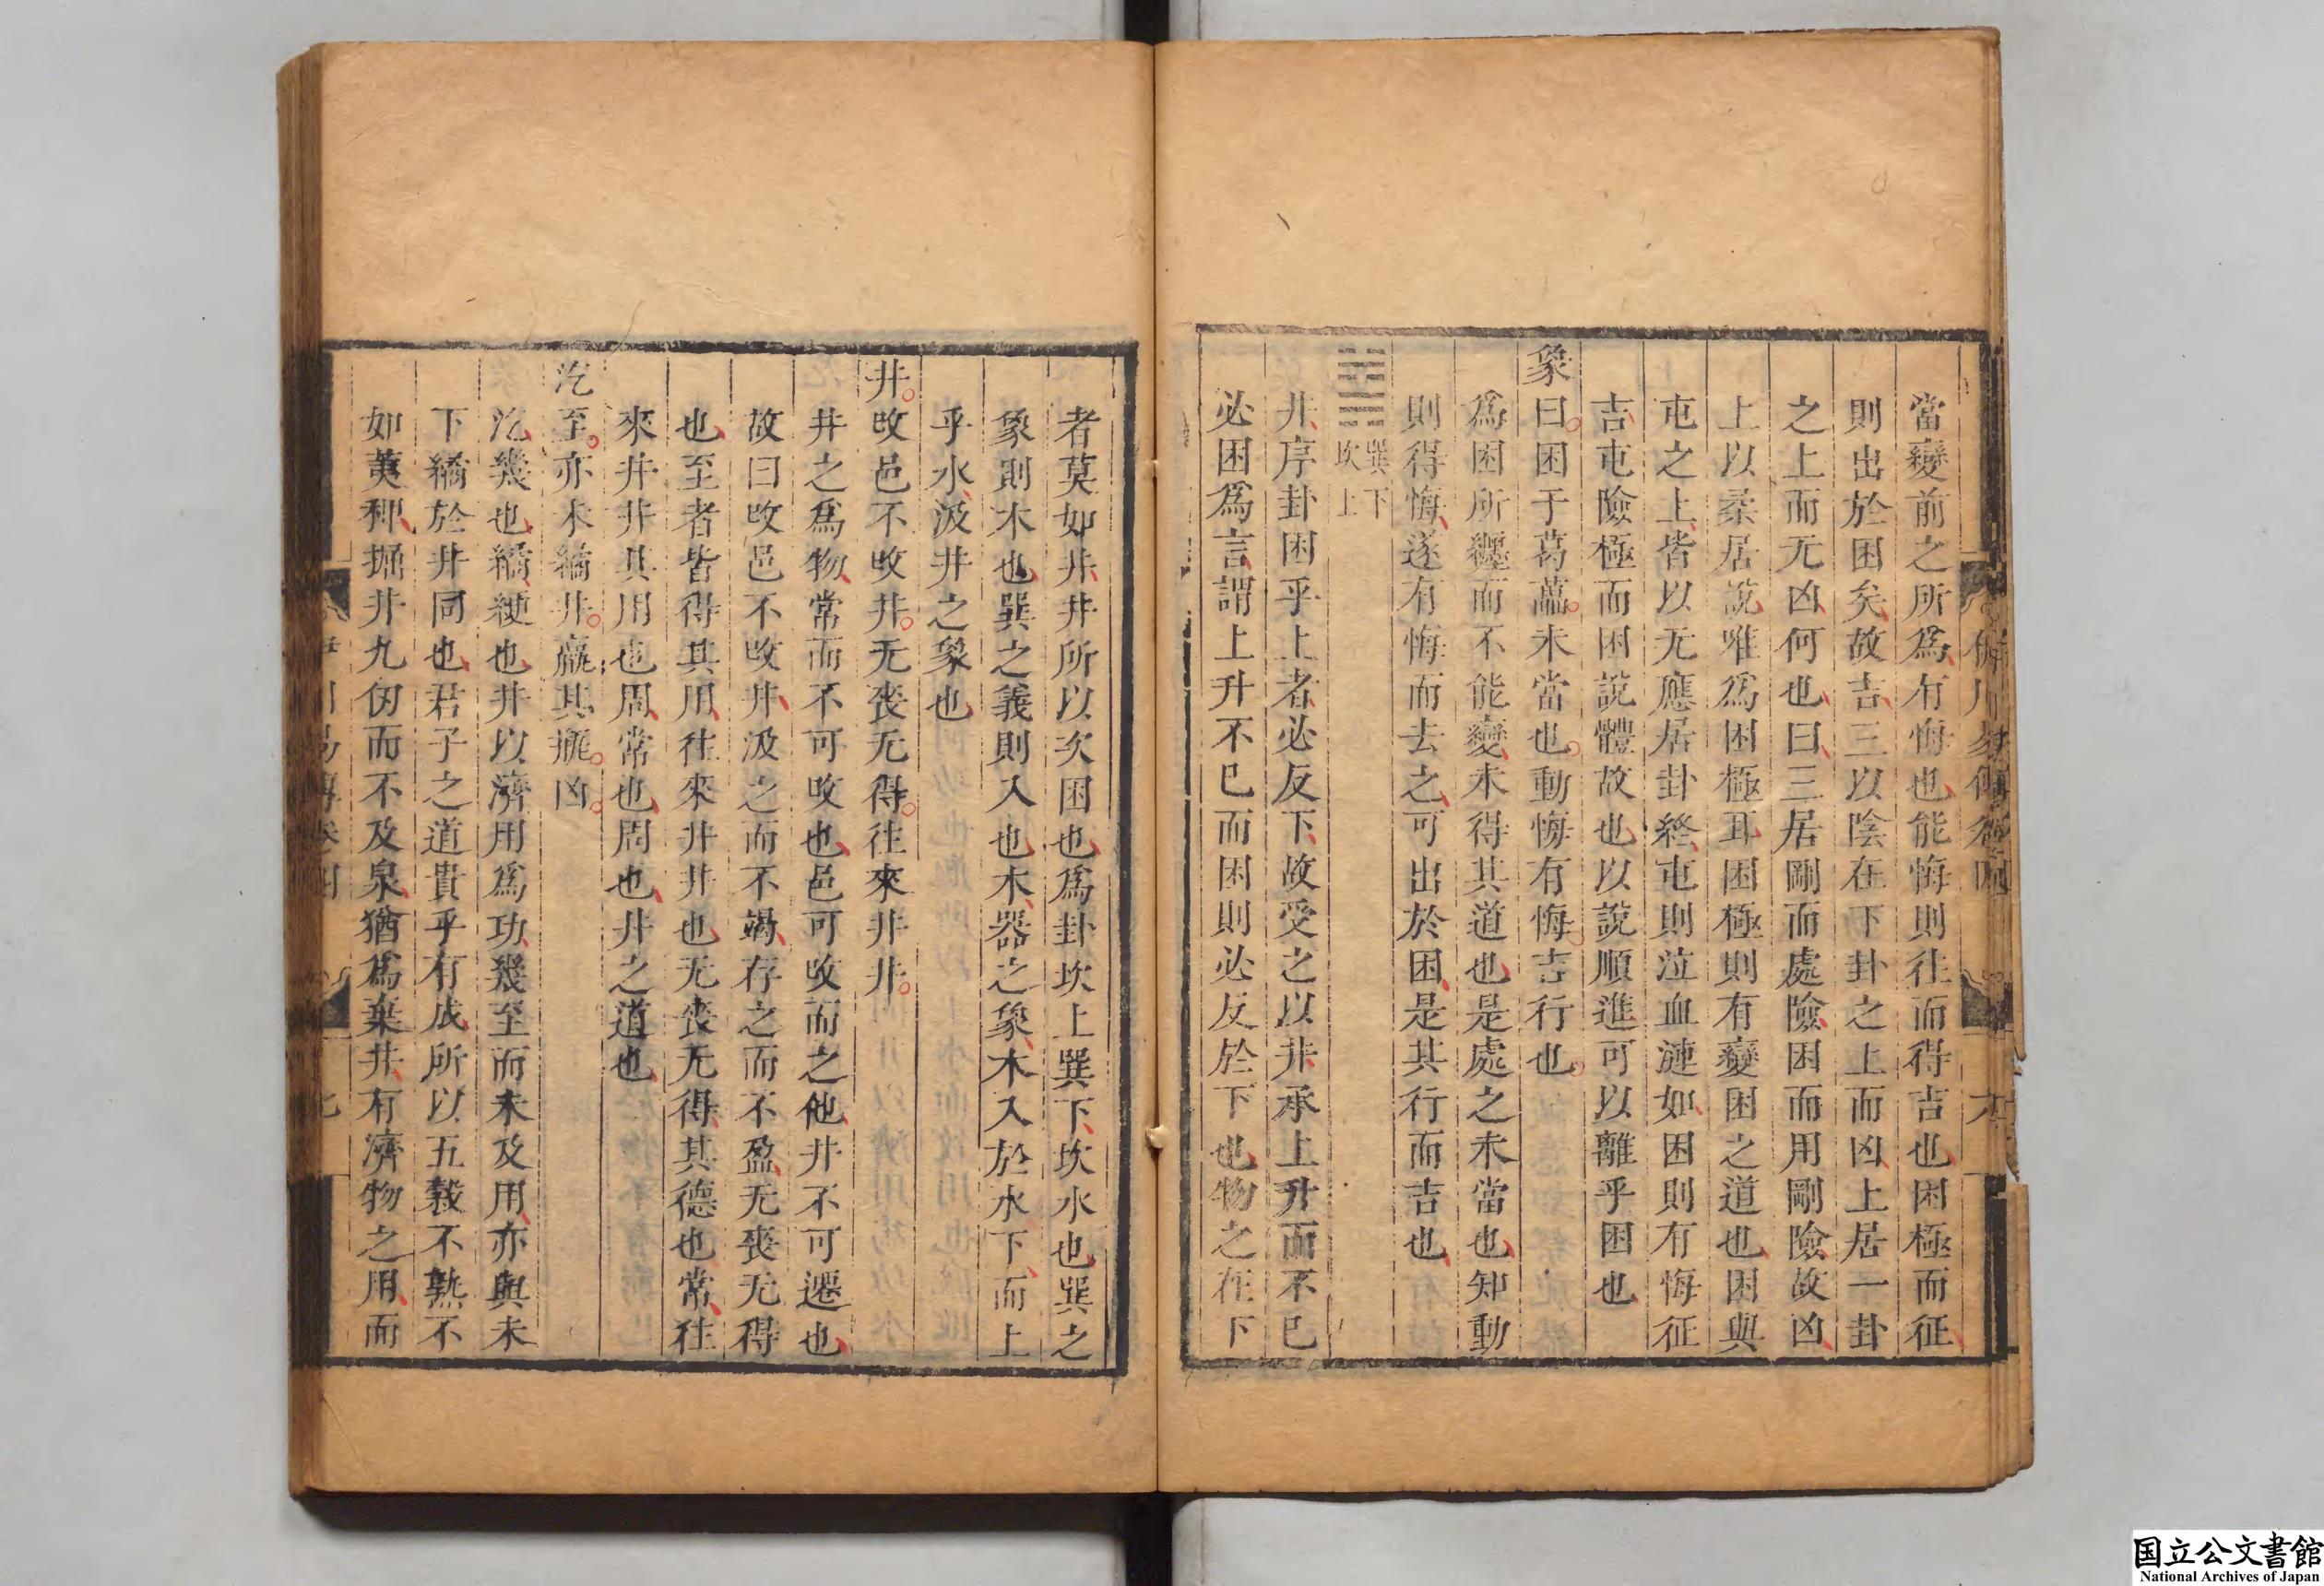 當變前之所爲有悔也能悔則往而得吉也困極而征
則出於困矣故吉三以陰在下卦之上而凶上居一卦
之上而无凶何也曰三居剛而處險困而用剛險故凶
上以柔居說唯爲困極耳困極則有變困之道也困與
屯之上皆以无應居卦終屯則泣血漣如困則有悔征
吉屯險極而困說體故也以說順進可以離乎困也
象曰困于葛藟未當也動悔有悔吉行也
爲困所纏而不能變未得其道也是處之未當也知動
則得悔遂有悔而去之可出於困是其行而吉也
䷯巽下坎上
井序卦困乎上者必反下故受之以井承上升而不已
必困爲言謂上升不已而困則必反於下也物之在下
者莫如井井所以次困也爲卦坎上巽下坎水也巽之
象則木也巽之義則入也木器之象木入於水下而上
乎水汲井之象也
井改邑不改井无喪无得往來井井
井之爲物常而不可改也邑可改而之他井不可遷也
故曰改邑不改井汲之而不竭存之而不盈无喪无得
也至者皆得其用往來井井也无喪无得其德也常往
來井井其用也周常也周也井之道也
汔至亦未繘井羸其瓶凶
汔幾也繘綆也井以濟用爲功幾至而未及用亦與未
下繘於井同也君子之道貴乎有成所以五穀不熟不
如荑稗掘井九仞而不及泉猶爲棄井有濟物之用而
国立公文書館
National Archives of Japan